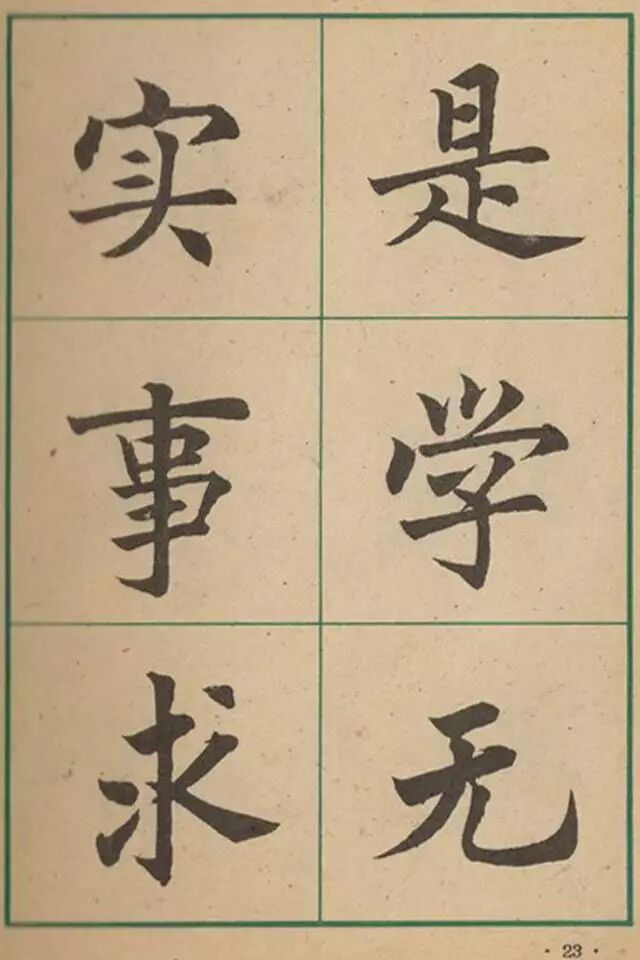 实事求
是学无
· 23 ·